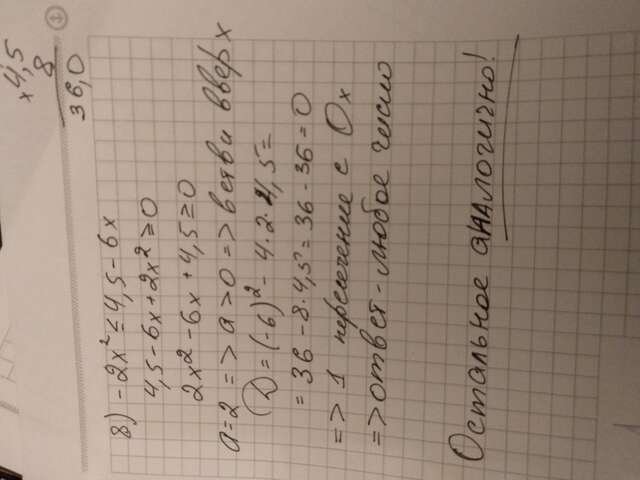 × 4,5
8
36,0
2
8) -2x² ≤ 4,5 - 6x
4,5 - 6x + 2x² ≥ 0
2x² - 6x + 4,5 ≥ 0
a = 2 => a > 0 => ветви вверх
D = (-6)² - 4·2·4,5 =
= 36 - 8·4,5 = 36 - 36 = 0
=> 1 пересечение с Ox
=> ответ - любое число
Остальное аналогично!